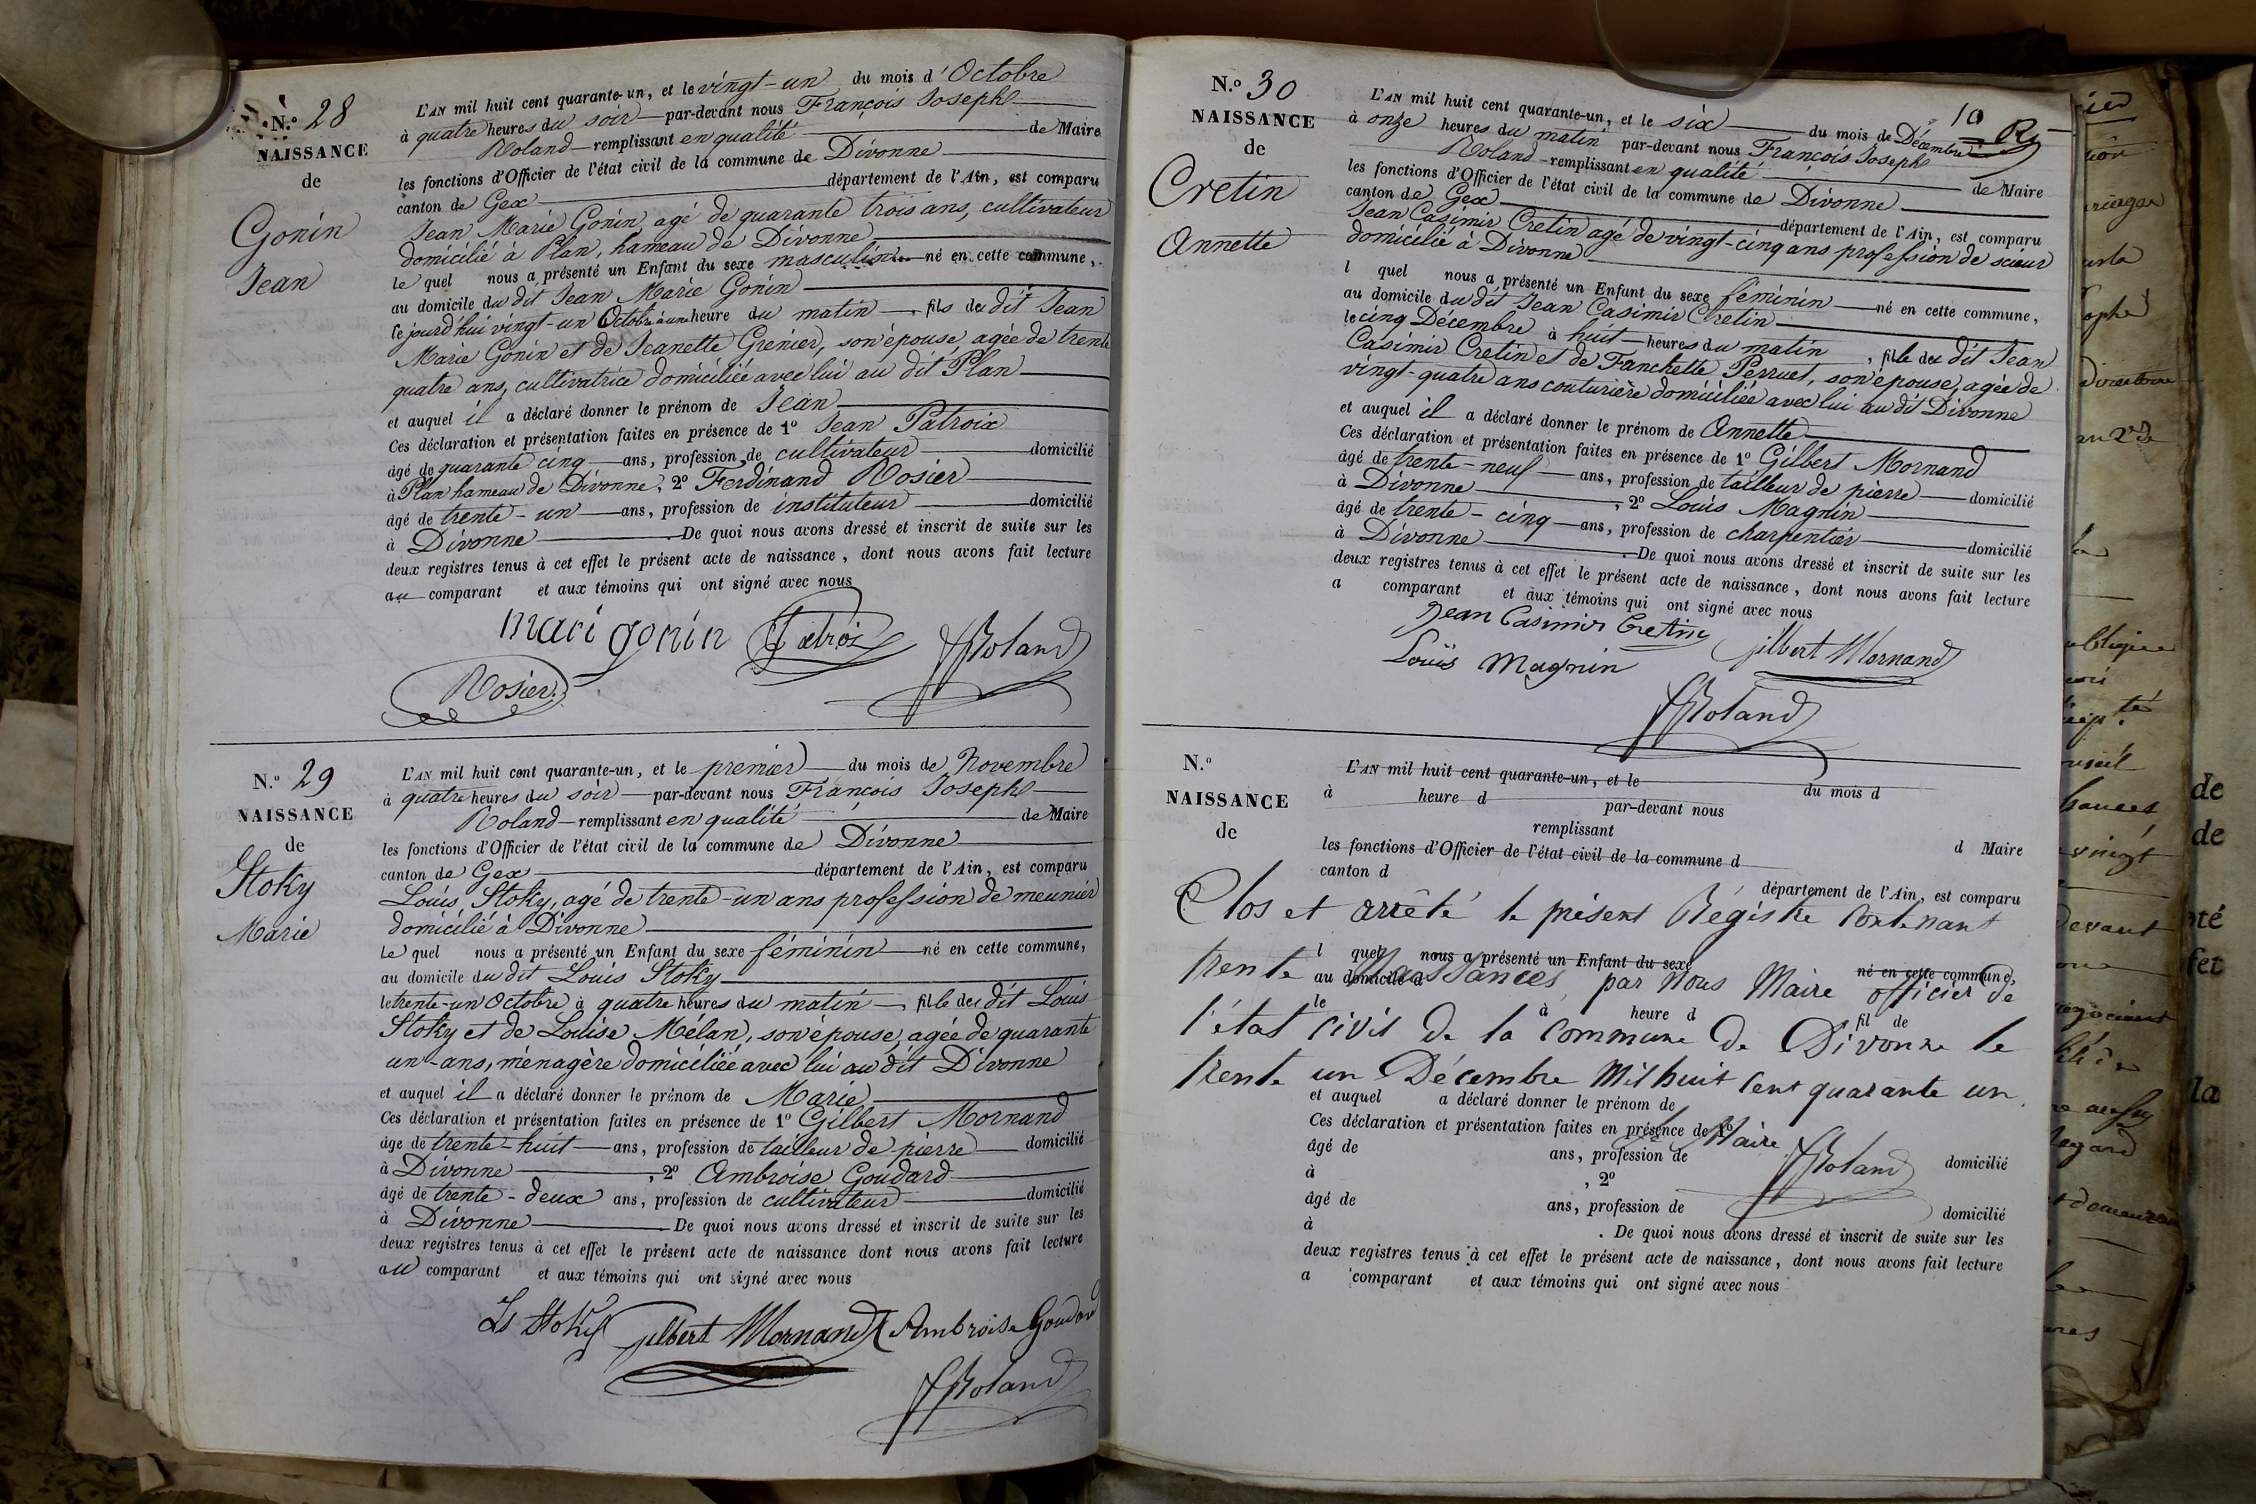 N.º 28
NAISSANCE
de
Gonin
Jean
L'AN mil huit cent quarante-un, et le vingt-un du mois d'Octobre
à quatre heures du soir par-devant nous François Joseph
Roland remplissant en qualité de Maire
les fonctions d'Officier de l'état civil de la commune de Divonne
canton de Gex département de l'Ain, est comparu
Jean Marie Gonin, agé de quarante trois ans, cultivateur
domicilié à Plan, hameau de Divonne
le quel nous a présenté un Enfant du sexe masculin né en cette commune,
au domicile du dit Jean Marie Gonin
ce jourd'hui vingt-un Octobre à une heure du matin, fils du dit Jean
Marie Gonin et de Jeanette Grenier, son épouse, agée de trente
quatre ans, cultivatrice domiciliée avec lui au dit Plan
et auquel il a déclaré donner le prénom de Jean
Ces déclaration et présentation faites en présence de 1º Jean Patroix
âgé de quarante cinq ans, profession de cultivateur domicilié
à Plan hameau de Divonne, 2º Ferdinand Rosier
âgé de trente-un ans, profession de instituteur domicilié
à Divonne De quoi nous avons dressé et inscrit de suite sur les
deux registres tenus à cet effet le présent acte de naissance, dont nous avons fait lecture
au comparant et aux témoins qui ont signé avec nous
mari gonin Patroi FRoland
Rosier
N.º 29
NAISSANCE
de
Stoky
Marie
L'AN mil huit cent quarante-un, et le premier du mois de Novembre
à quatre heures du soir par-devant nous François Joseph
Roland remplissant en qualité de Maire
les fonctions d'Officier de l'état civil de la commune de Divonne
canton de Gex département de l'Ain, est comparu
Louis Stoky, agé de trente-un ans profession de meunier
domicilié à Divonne
le quel nous a présenté un Enfant du sexe féminin né en cette commune,
au domicile du dit Louis Stoky
le trente-un Octobre à quatre heures du matin, fille du dit Louis
Stoky et de Louise Mélan, son épouse, agée de quarante
un-ans, ménagère domiciliée avec lui au dit Divonne
et auquel il a déclaré donner le prénom de Marie
Ces déclaration et présentation faites en présence de 1º Gilbert Mornand
âgé de trente-huit ans, profession de tailleur de pierre domicilié
à Divonne, 2º Ambroise Goudard
âgé de trente-deux ans, profession de cultivateur domicilié
à Divonne De quoi nous avons dressé et inscrit de suite sur les
deux registres tenus à cet effet le présent acte de naissance dont nous avons fait lecture
au comparant et aux témoins qui ont signé avec nous
Ls Stoky Gilbert Mornand Ambroise Goudard
FRoland
10
N.º 30
NAISSANCE
de
Cretin
Annette
L'AN mil huit cent quarante-un, et le six du mois de Décembre
à onze heures du matin par-devant nous François Joseph
Roland remplissant en qualité de Maire
les fonctions d'Officier de l'état civil de la commune de Divonne
canton de Gex département de l'Ain, est comparu
Jean Casimir Cretin agé de vingt-cinq ans profession de scieur
domicilié à Divonne
l quel nous a présenté un Enfant du sexe féminin né en cette commune,
au domicile du dit Jean Casimir Cretin
le cinq Décembre à huit heures du matin, fille du dit Jean
Casimir Cretin et de Fanchette Perruet, son épouse, agée de
vingt-quatre ans couturière domiciliée avec lui au dit Divonne
et auquel il a déclaré donner le prénom de Annette
Ces déclaration et présentation faites en présence de 1º Gilbert Mornand
âgé de trente-neuf ans, profession de tailleur de pierre domicilié
à Divonne, 2º Louis Magnin
âgé de trente-cinq ans, profession de charpentier domicilié
à Divonne. De quoi nous avons dressé et inscrit de suite sur les
deux registres tenus à cet effet le présent acte de naissance, dont nous avons fait lecture
a comparant et aux témoins qui ont signé avec nous
Jean Casimir Cretin
Louis Magnin Gilbert Mornand
FRoland
N.º
NAISSANCE
de
L'AN mil huit cent quarante-un, et le du mois d
à heure d par-devant nous
remplissant d Maire
les fonctions d'Officier de l'état civil de la commune d
canton d département de l'Ain, est comparu
Clos et arrêté le présent Régistre contenant
l quel nous a présenté un Enfant du sexe né en cette commune,
trente Naissances par Nous Maire officier de
au domicile d
le à heure d fil de
l'état civil de la commune de Divonne le
trente un Décembre Mil huit Cent quarante un.
et auquel a déclaré donner le prénom de
Ces déclaration et présentation faites en présence de 1º
Le Maire FRoland
âgé de ans, profession de domicilié
à , 2º
âgé de ans, profession de domicilié
à . De quoi nous avons dressé et inscrit de suite sur les
deux registres tenus à cet effet le présent acte de naissance, dont nous avons fait lecture
a comparant et aux témoins qui ont signé avec nous
de
de
la